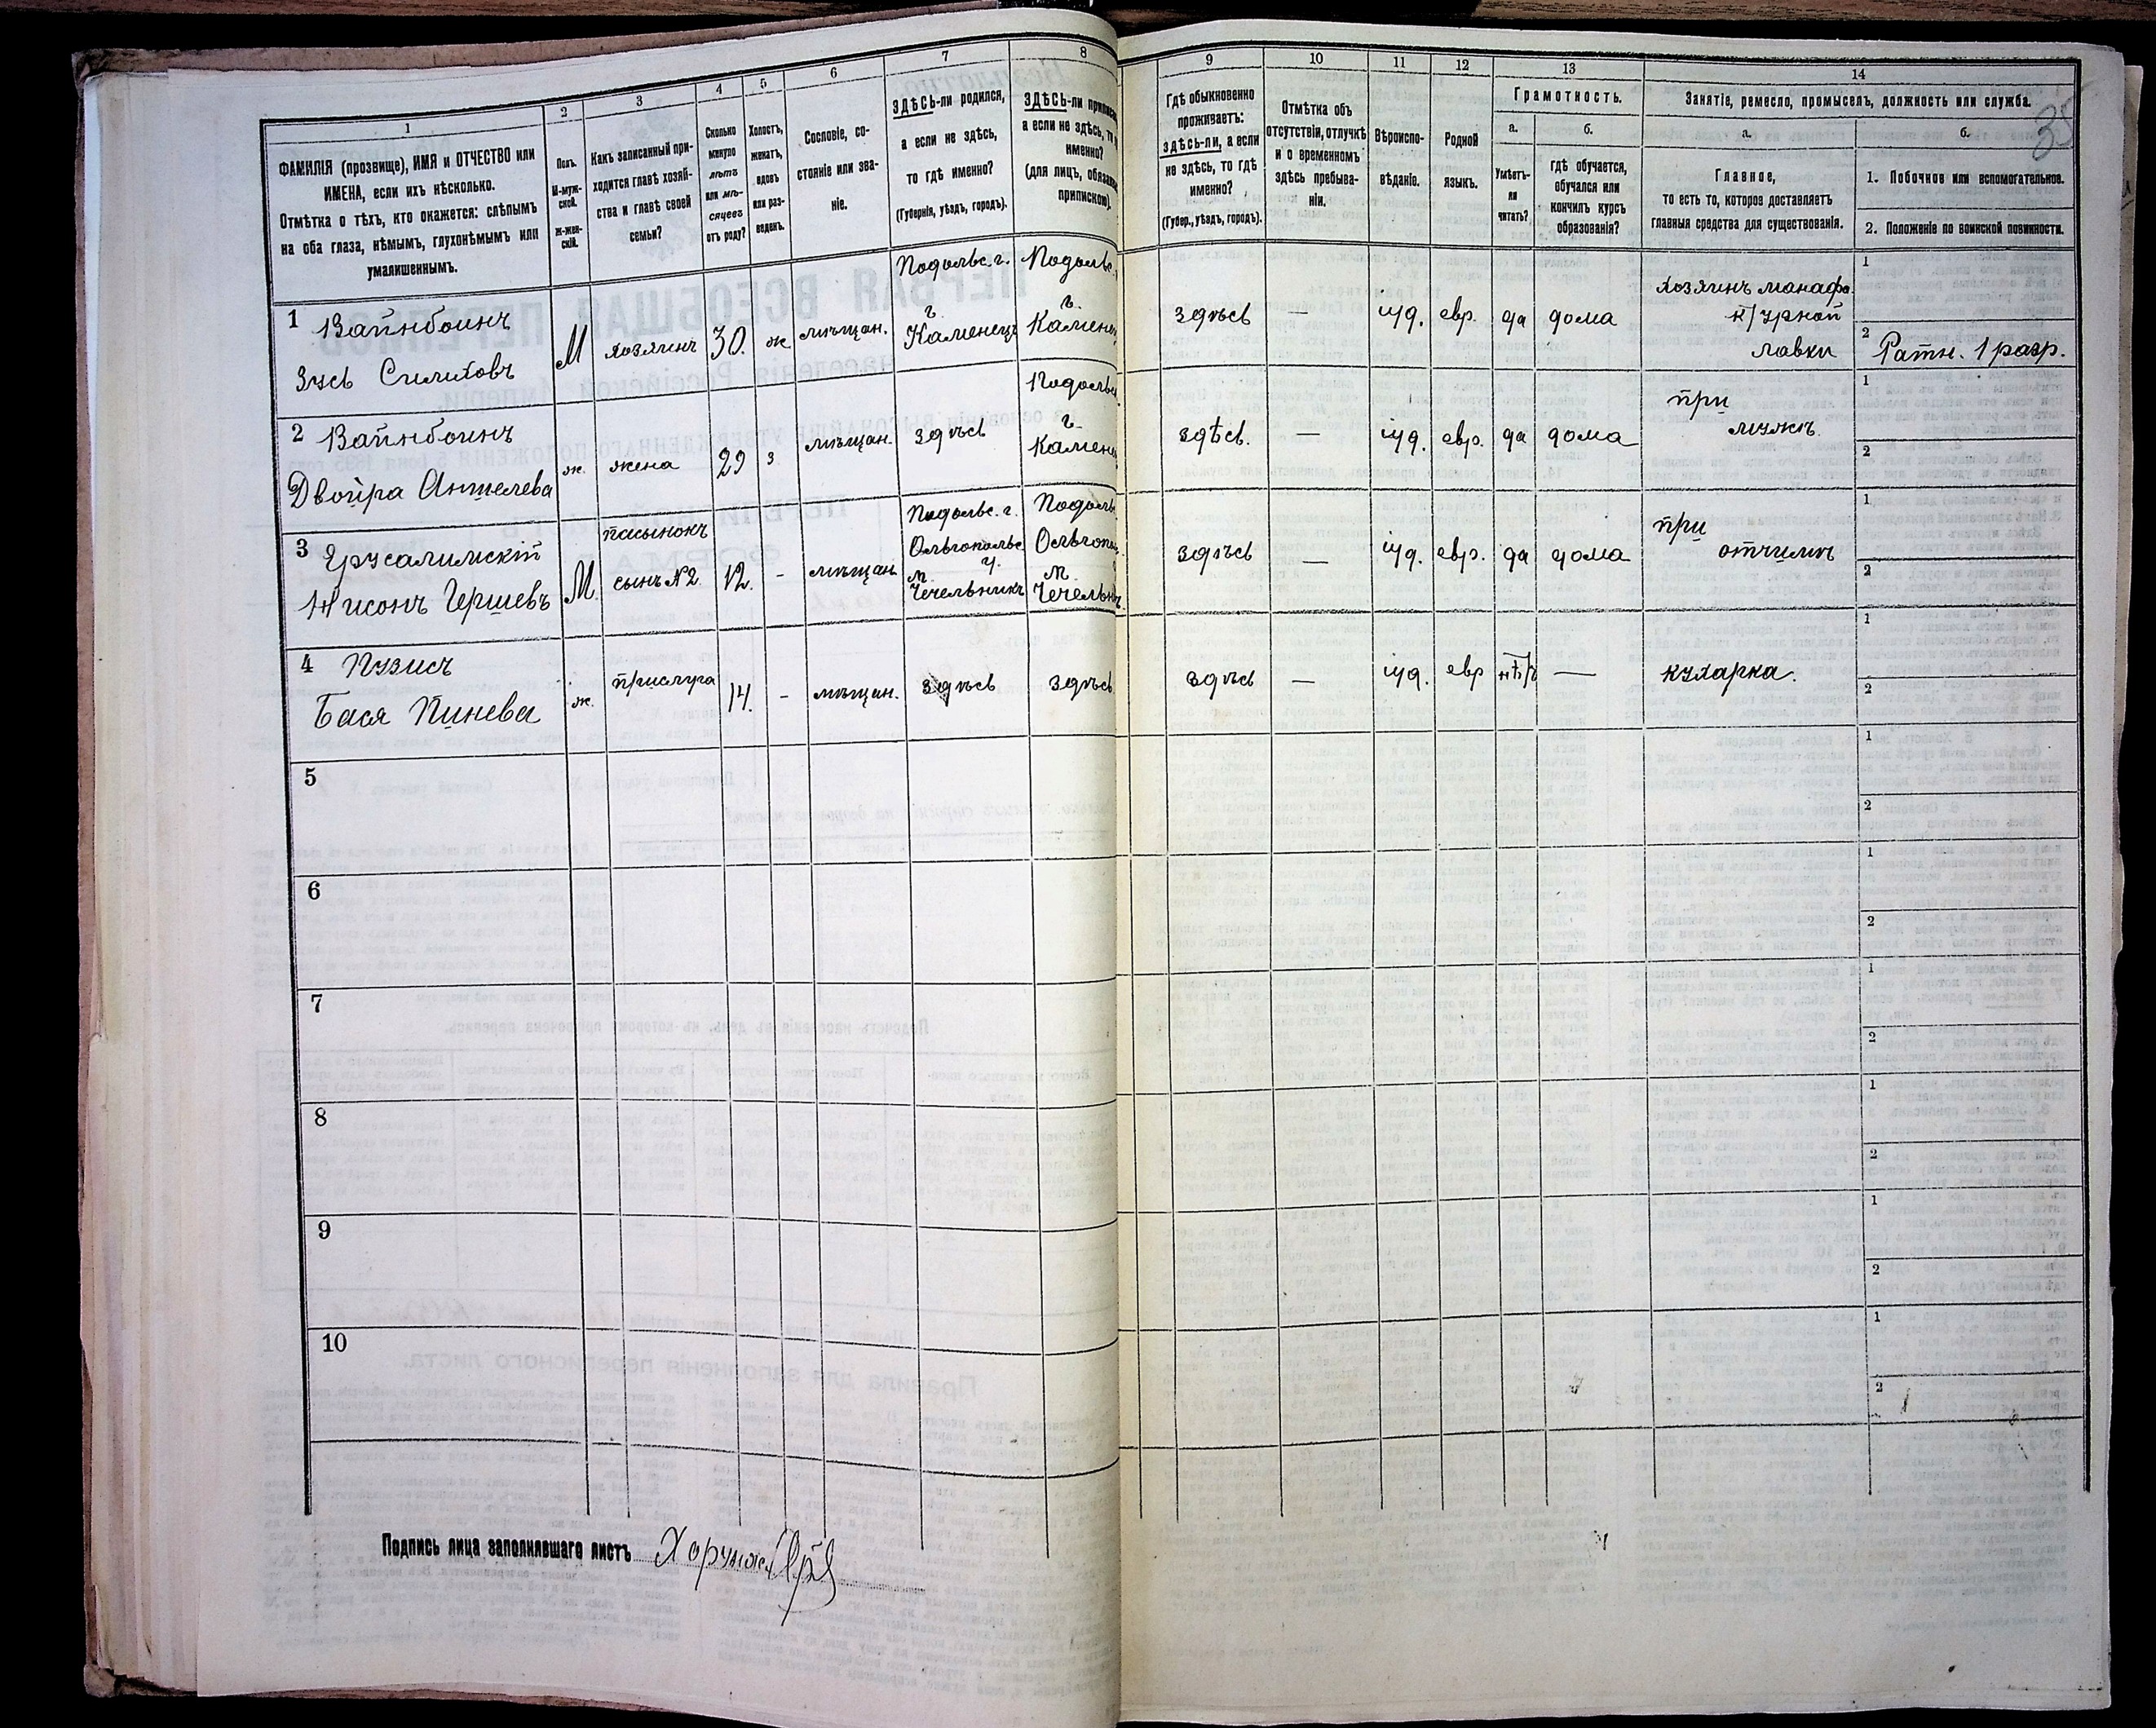 1 2 3 4 5 6 7 8 9 10 11 12 13 14
ФАМИЛІЯ (прозвище), ИМЯ и ОТЧЕСТВО или
ИМЕНА, если ихъ нѣсколько.
Отмѣтка о тѣхъ, кто окажется: слѣпымъ
на оба глаза, нѣмымъ, глухонѣмымъ или
умалишеннымъ.
Полъ.
М-муж-
ской.
Ж-жен-
скій.
Какъ записанный при-
ходится главѣ хозяй-
ства и главѣ своей
семьи?
Сколько
минуло
лѣтъ
или мѣ-
сяцевъ
отъ роду?
Холостъ,
женатъ,
вдовъ
или раз-
веденъ.
Сословіе, со-
стояніе или зва-
ніе.
ЗДѢСЬ-ли родился,
а если не здѣсь,
то гдѣ именно?
(Губернія, уѣздъ, городъ).
ЗДѢСЬ-ли
а если не здѣсь,
именно?
(для лицъ,
припискою).
Гдѣ обыкновенно
проживаетъ:
здѣсь-ли, а если
не здѣсь, то гдѣ
именно?
(Губер., уѣздъ, городъ).
Отмѣтка объ
отсутствіи, отлучкѣ
и о временномъ
здѣсь пребыва-
ніи.
Вѣроиспо-
вѣданіе.
Родной
языкъ.
Грамотность.
а.
Умѣетъ-
ли
читать?
б.
гдѣ обучается,
обучался или
кончилъ курсъ
образованія?
Занятіе, ремесло, промыселъ, должность или служба.
а.
Главное,
то есть то, которое доставляетъ
главныя средства для существованія.
б.
1. Побочное или вспомогательное.
2. Положеніе по воинской повинности.
1 Вайнбоинъ
Зусь Силиховъ
М
хозяинъ
30.
ж
мѣщан.
Подольс. г.
г.
Каменецъ
Подольс.
г.
Камен
здѣсь
—
іуд.
евр.
да
дома
хозяинъ манафа
к/урной
лавки
1
2 Ратн. 1 разр.
2 Вайнбоинъ
Двойра Аншелева
ж.
жена
29
з
мѣщан.
здѣсь
Подольс
г.
Камен
здѣсь.
—
іуд.
евр.
да
дома
при
мужѣ
1
2
3 Ерусалимскій
Нисонъ Гершевъ
М.
пасынокъ
сынъ №2.
12.
-
мѣщан
Подольс. г.
Ольгопольс
у.
м.
Чечельникъ
Подоль
Ольгопо
м.
Чечельн
здѣсь
—
іуд.
евр.
да
дома
при
отчимѣ
1
2
4 Пузисъ
Бася Пинева
ж.
прислуга
14.
-
мѣщан.
здѣсь
здѣсь
здѣсь
—
іуд.
евр
нѣтъ
—
кухарка.
1
2
5
1
2
6
1
2
7
1
2
8
1
2
9
1
2
10
1
2
Подпись лица заполнявшаго листъ